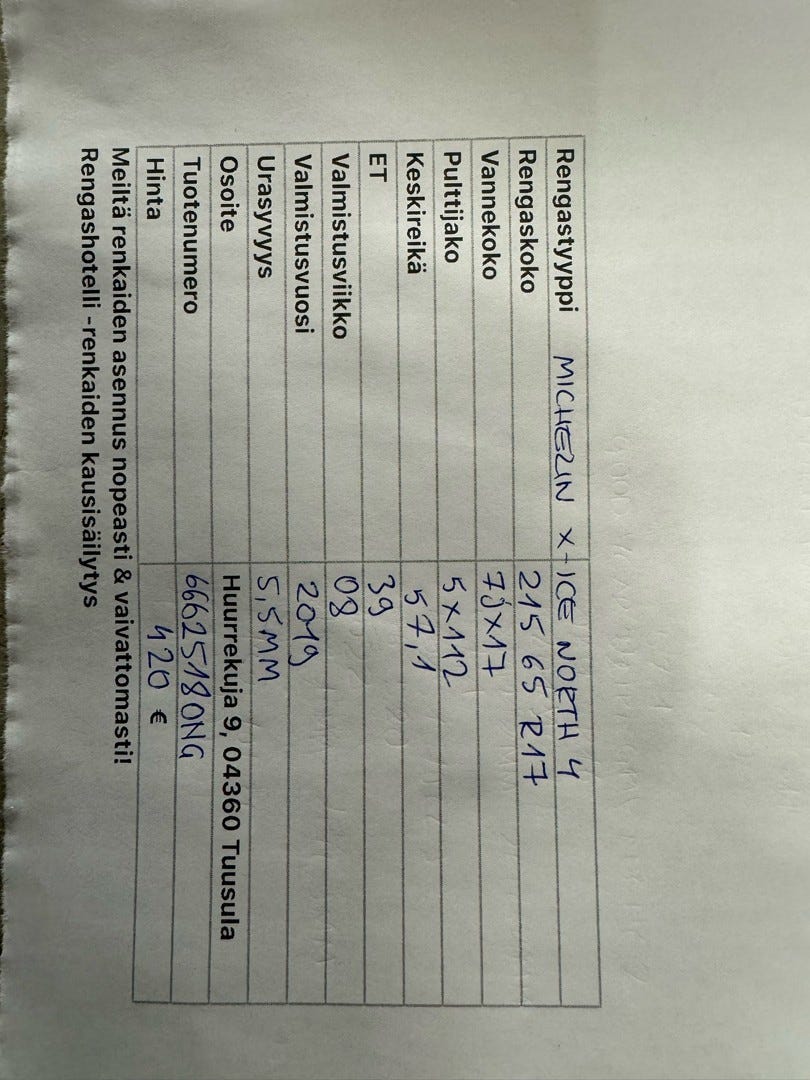 Rengastyyppi MICHELIN X-ICE NORTH 4
Rengaskoko 215 65 R17
Vannekoko 7Jx17
Pulttijako 5x112
Keskireikä 57,1
ET 39
Valmistusviikko 08
Valmistusvuosi 2019
Urasyvyys 5,5MM
Osoite Huurrekuja 9, 04360 Tuusula
Tuotenumero 6662518ONG
Hinta 420 €
Meiltä renkaiden asennus nopeasti & vaivattomasti!
Rengashotelli -renkaiden kausisäilytys